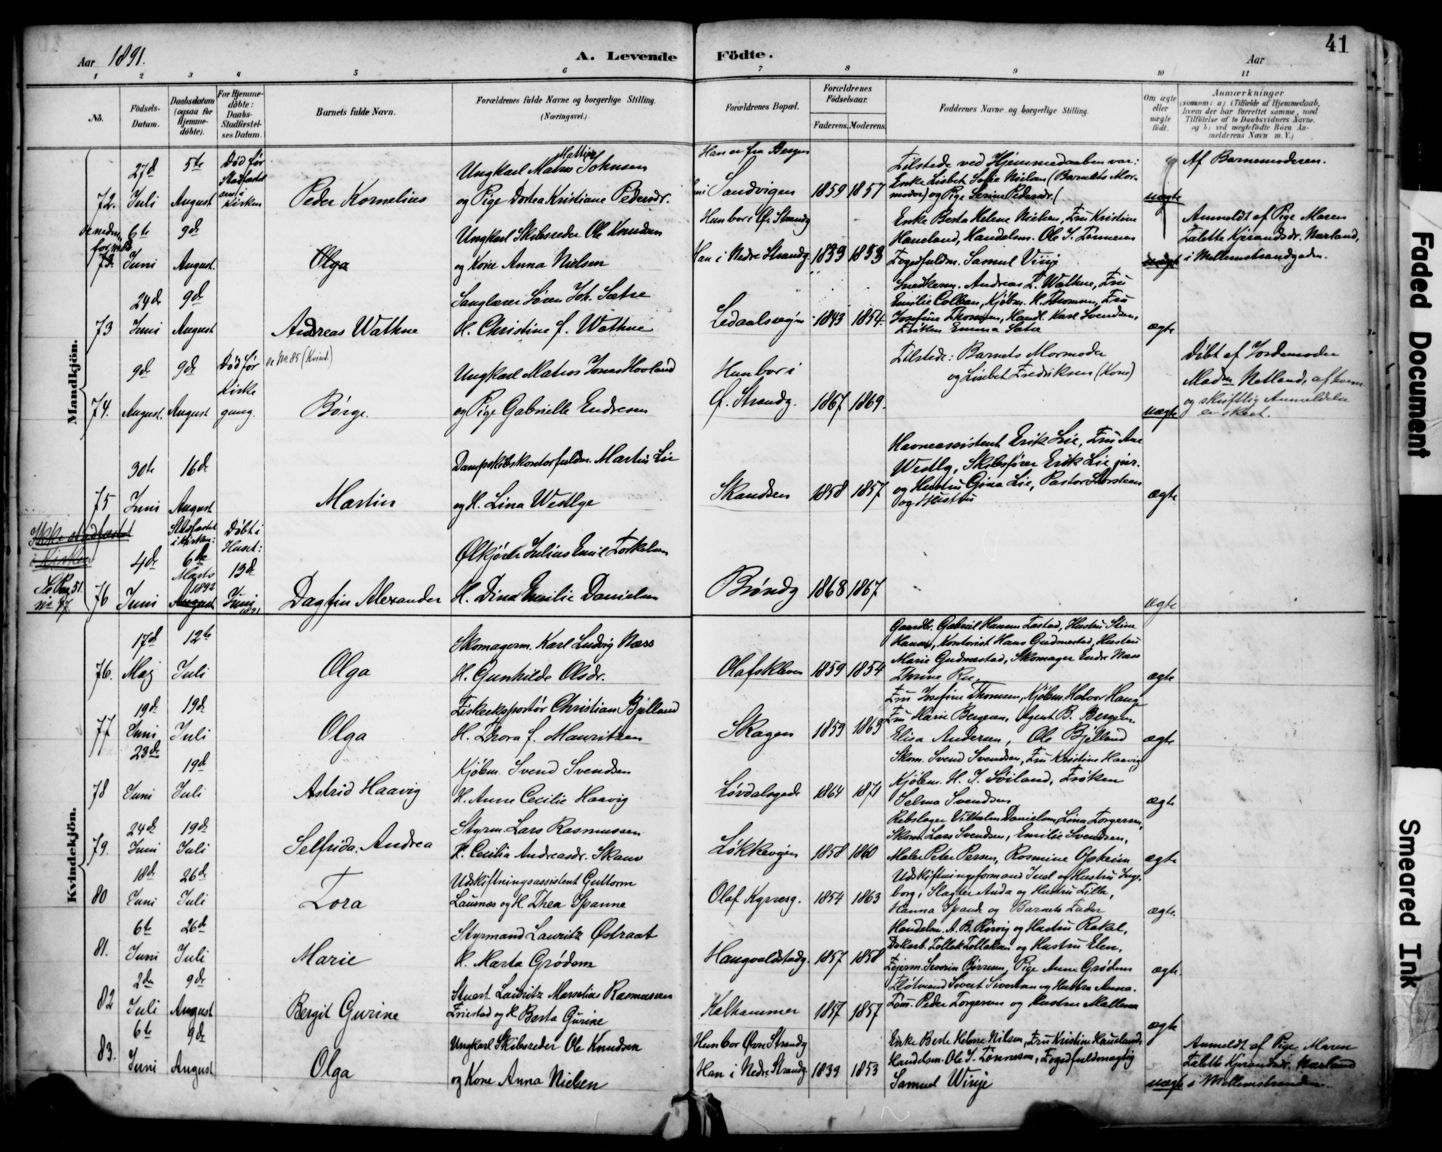 Aar 1891.
A. Levende Födte.
Aar
41
1 2 3 4 5 6 7 8 9 10 11
No.
Födsels-Datum.
Daabsdatum (ogsaa for Hjemmedöbte).
For Hjemmedöbte: Daabs-Stadfæstelses Datum.
Barnets fulde Navn.
Forældrenes fulde Navne og borgerlige Stilling. (Næringsvei.)
Forældrenes Bopæl.
Forældrenes Födselsaar.
Faderens. Moderens.
Faddernes Navne og borgerlige Stilling.
Om ægte eller uægte födt.
Anmærkninger
Mandkjön.
72. 27de Juli
5te August
Död för Stadfæstelsen i Kirken
Peder Kornelius
Ungkarl Mathias Johnsen
og Pige Dortea Kristiane Pedersdr.
Han er fra Bergen
Sandvigen
1859 1857
Tilstede ved Hjemmedaaben var:
Enke Lisbet Sofie Nielsen (Barnets Mormoder) og Pige Serine Pedersdr.
uægte
Af Barnemoderen.
73. 6te Juni
9de August
Olga
Ungkarl Skibsreder Ole Knudsen
og Kone Anna Nielsen
Hun bor i Ø. Strandg.
Han i Nedre Strandg.
1839 1853
Enke Berta Helene Nielsen, Fru Kristine
Haueland, Handelsm. Ole S. Tönnesen
Fogedfuldm. Samuel Wiese
uægte
Anmeldt af Pige Maren
Talette Kjerandsdr. Narland,
i Mellemstrandgaden.
73 24de Juni
9de August
Andreas Wathne
Sanglærer Sören Joh. Sætre
H. Christine f. Wathne
Ledaalsveien
1843 1854.
Snedkerm. Andreas L. Wathne, Fru
Emilie Colban, Kjöbm. H. Thomsen, Fru
Josefine Thomsen, Handl. Karl Svendsen,
Fröken Emma Sætre
ægte
74. 9de August.
9de August
Död før Kirkegang.
se No 85 (Kvind.)
Börge.
Ungkarl Matias Jonas Hovland
og Pige Gabrielle Endresen
Hun bor i
Ø. Strandg.
1867 1869.
Tilstede: Barnets Mormoder
og Lisbet Fredriksen (Kone)
uægte
Döbt af Jordemoder
Madm Natland, af hvem
og skriftlig Anmeldelse
er skeet.
75 30te Juni
16de August
Martin
Dampskibskontorfuldm. Martin Lie
og H. Lina Wedlye
Skandsen
1858 1857
Havneassistent Erik Lie, Fru Ane
Wedlby, Skibsfører Erik Lie jur.
og Hustru Gina Lie, Pastor Storsteen
og Hustru
ægte
Ikke stadfæstet
i Kirken
Se Pag 51.
No 37
76 4de Juni
Stadfæstet i Kirken: 6te Marts 1892
August
Döbt i Huset: 13de Juni 1891
Dagfin Alexander
Ølkjörer Julius Emil Torkelsen
H. Dina Emilie Danielsen
Bröndg
1868 1867
ægte
Kvindekjön.
76. 17de Maj
12te Juli
Olga
Skomagerm. Karl Ludvig Næss
H. Gunhilde Olsdr.
Olafskleven
1859 1854
Gaardbr. Gabriel Hansen Tastad, Hustru Stine
Hansen, Kontorist Hans Gudmestad, Hustru
Marie Gudmestad, Skomager Endre Næss
Thrine Ree
ægte
77 19de Juni
19de Juli
Olga
Fiskeeksportör Christian Bjelland
H. Thora f. Mauritzen
Skagen
1859 1863
Fru Josefine Thomsen, Kjöbm. Halvor Haug
Fru Marie Bergesen, Agent B. Bergesen
Elisa Andersen, Ole Bjelland
ægte
78 23de Juni
19de Juli
Astrid Haavig
Kjöbm. Svend Svendsen
H. Anne Cecilie Haavig
Lövdalsgade
1864 1871
Skom. Svend Svendsen, Fru Kristine Haavig
Kjöbm. H. J. Söiland, Fröken
Selma Svendsen
ægte
79. 24de Juni
19de Juli
Selfrida Andrea
Styrm. Lars Rasmussen
H. Cecilia Andreasdr. Skaar
Løkkeveien
1858 1860
Rebslager Vilhelm Danielsen, Lina Torgersen,
Skom. Lars Svendsen, Emilie Svendsen,
Maler Peter Persen, Rosmine Opheim
ægte
80 18de Juni
26de Juli
Tora
Udskiftningsassistent Guttorm
Launes og H. Thea Spanne
Olaf Kyrresg.
1854 1863
Udskiftningsformand Juel og Hustru Ingeborg, Slagter Anda og Hustru Lilla,
Hanna Spande og Barnets Fader
ægte.
81. 6te Juni
26de Juli
Marie
Styrmand Lauritz Østraat
H. Marta Grödem
Haugvaldstadg.
1857 1858
Handelsm. A. B. Rövig og Hustru Rakel,
Dekarb. Tollek Tolleksen og Hustru Elen,
Lejerm. Severin Börresen, Pige Anne Grödem
ægte.
82 2de Juli
9de August
Bergit Gurine
Stuert Lauritz Marselius Rasmussen
Friestad og H. Berta Gurine
Kalhammer
1857 1857
Flötmand Sivert Sivertsen og Hustru Anna.
Töm. Peder Torgersen og Hustru Mallene
ægte
83. 6te Juni
9de August
Olga
Ungkarl Skibsreder Ole Knudsen
og Kone Anna Nielsen
Hun bor Övre Strandg
Han i Nedre Strandg
1839 1853
Enke Berte Helene Nilsen, Fru Kristine Haueland
Handelsm. Ole S. Tönnesen, Fogedfuldmægtig
Samuel Wiese
uægte
Anmeldt af Pige Maren
Talette Kjerandsdr. Narland
i Mellemstranden.
Faded Document
Smeared Ink